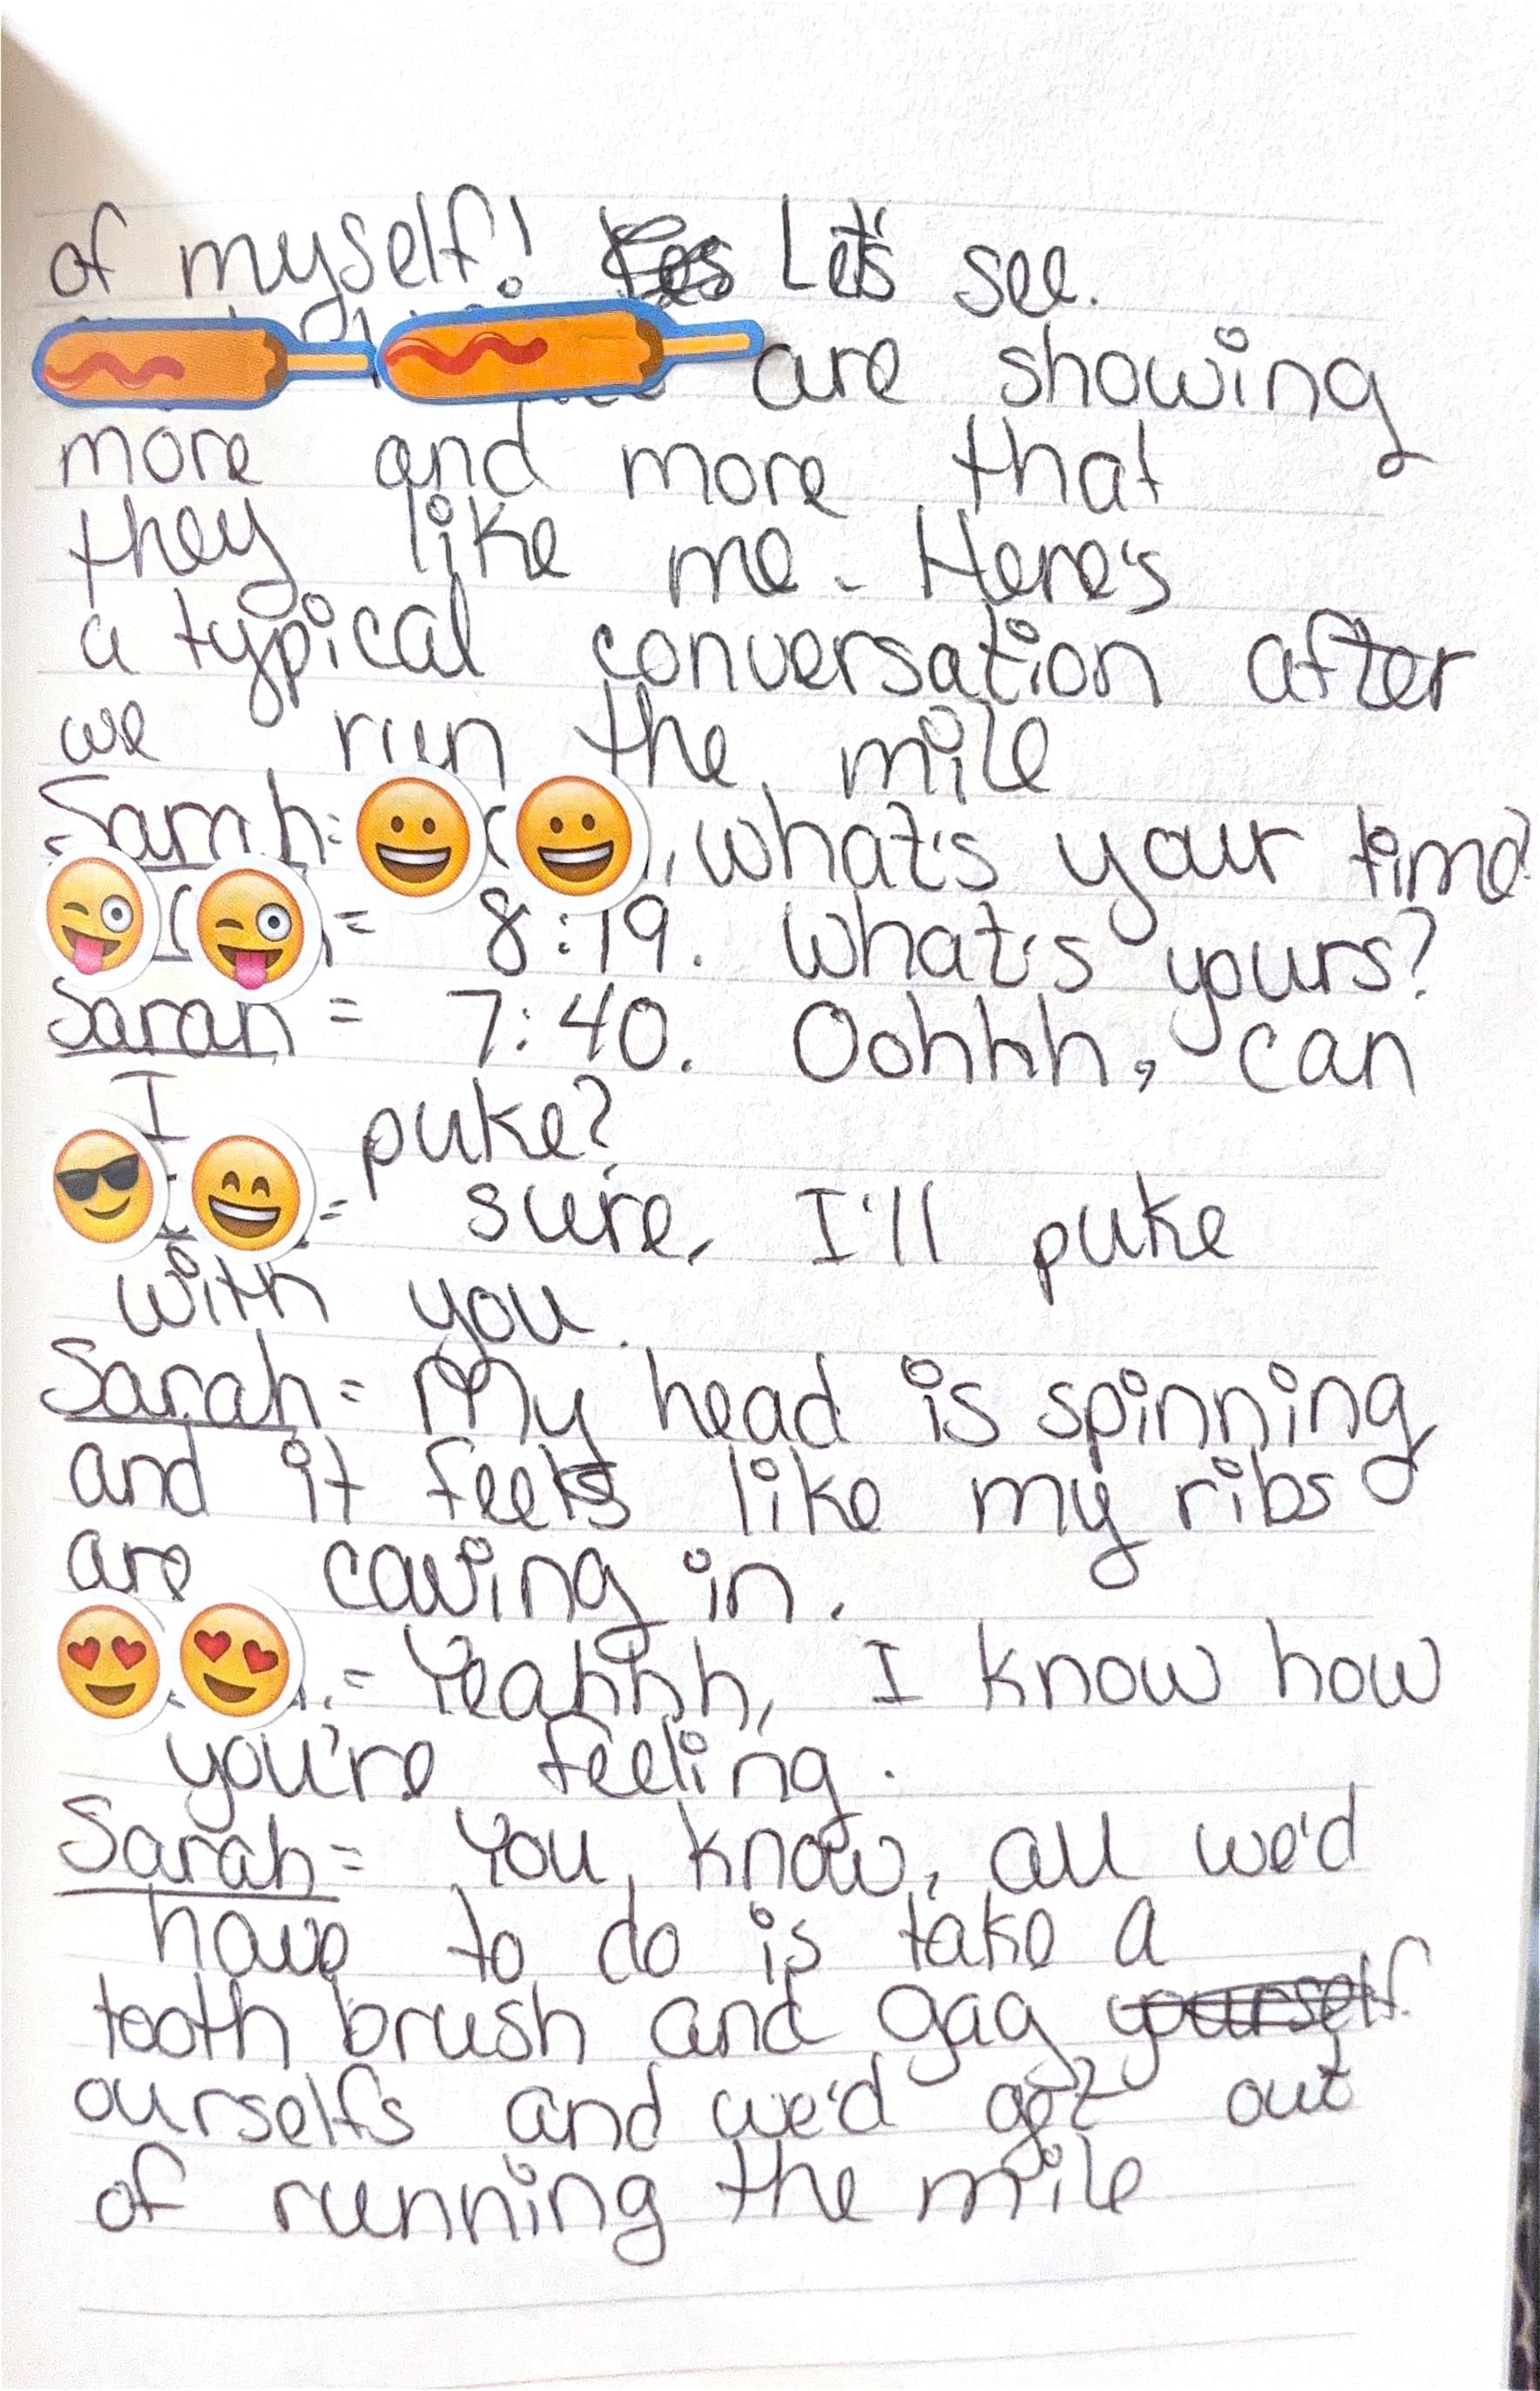 of myself! Let's see.
are showing
more and more that
they like me. Here's
a typical conversation after
we run the mile
Sarah: , what's your time?
= 8:19. What's yours?
Sarah = 7:40. Oohhh, can
I puke?
= sure, I'll puke
with you.
Sarah = My head is spinning
and it feels like my ribs
are caving in.
= Yeahhh, I know how
you're feeling.
Sarah = You know, all we'd
have to do is take a
tooth brush and gag yourself
ourselfs and we'd get out
of running the mile